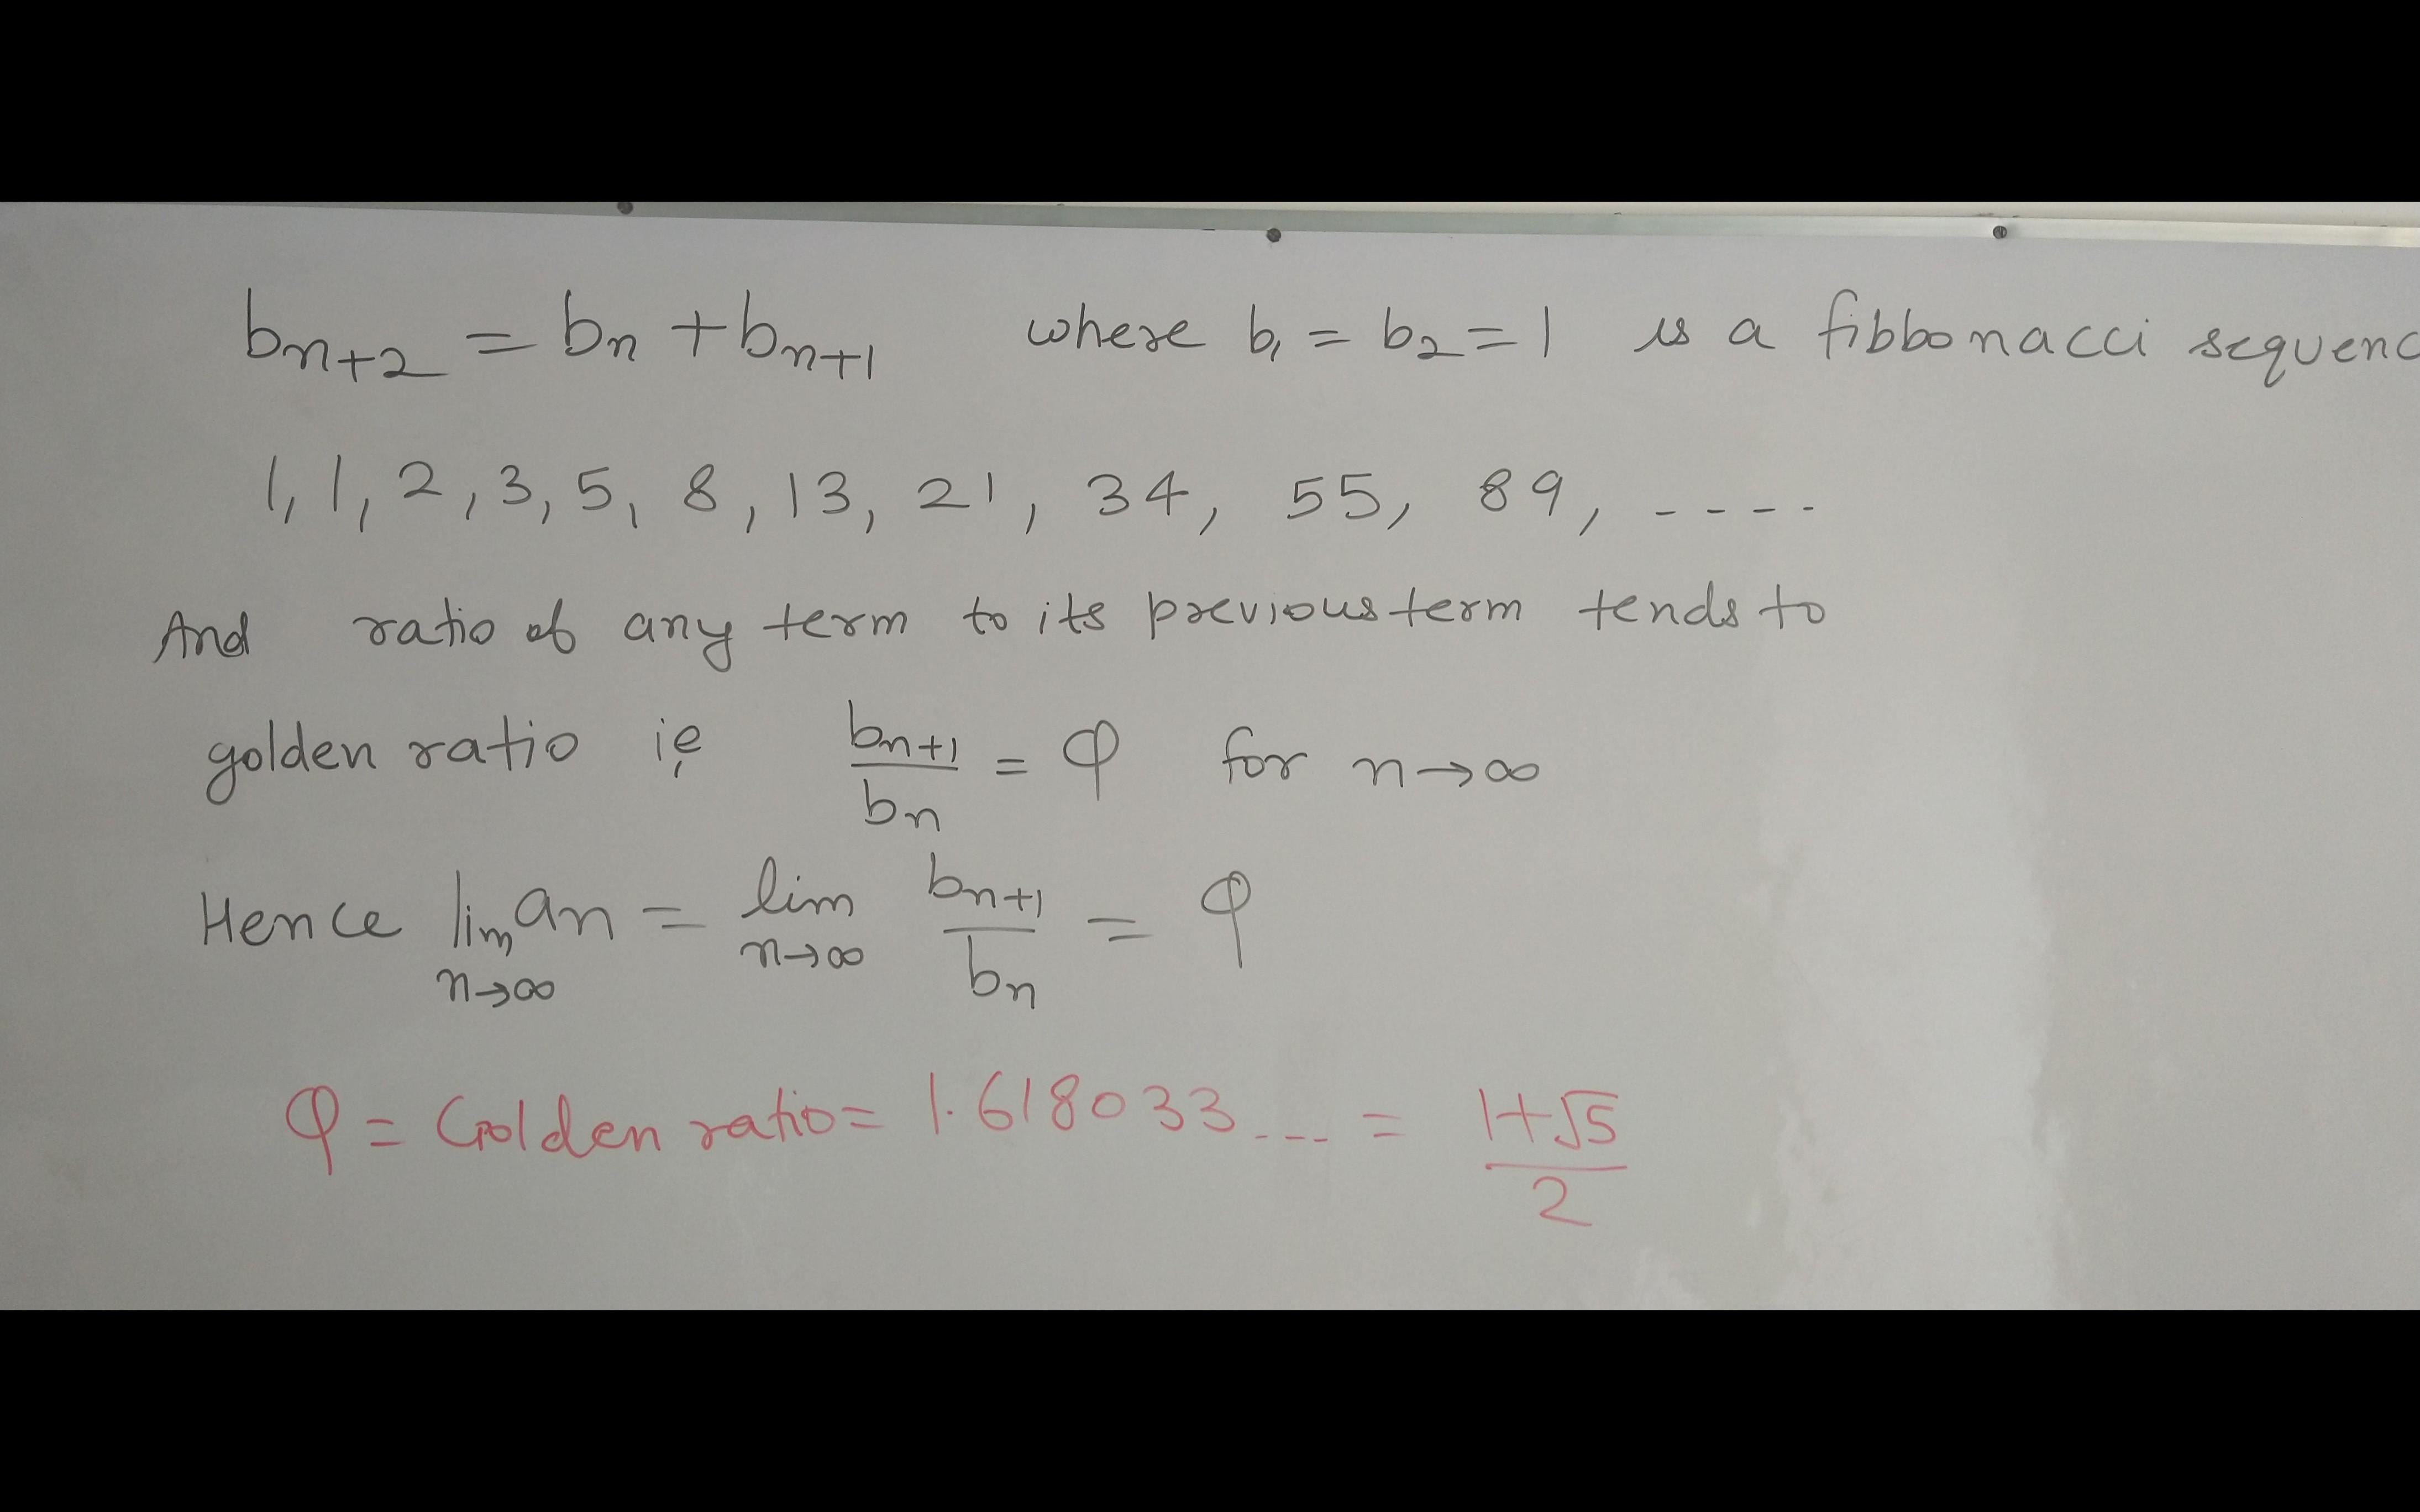 bn+2 = bn + bn+1 where b1 = b2 = 1 is a fibbonacci sequenc
1, 1, 2, 3, 5, 8, 13, 21, 34, 55, 89, ----
And ratio of any term to its previous term tends to
golden ratio ie, bn+1/bn = φ for n→∞
Hence lim n→∞ an = lim n→∞ bn+1/bn = φ
φ = Golden ratio = 1.618033---- = 1+√5/2